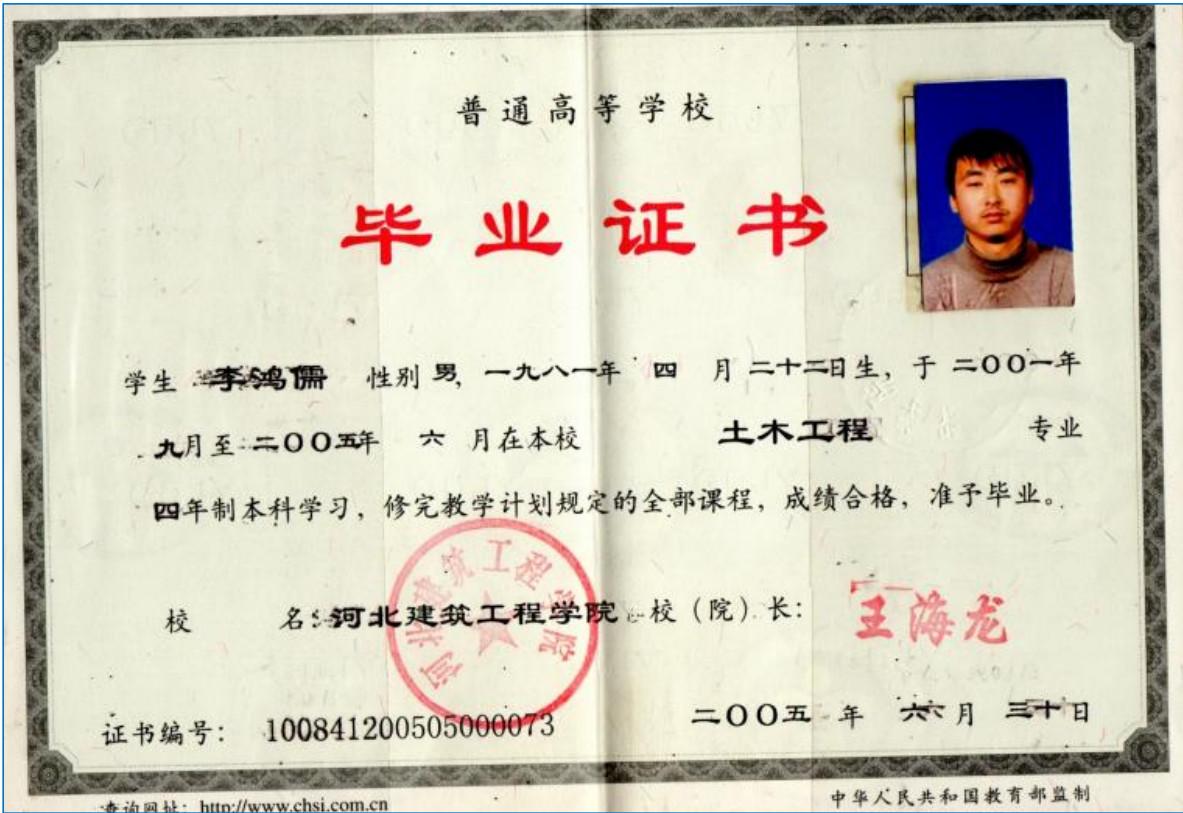 普通高等学校
毕业证书
学生 李鸿儒 性别 男，一九八一年 四 月 二十二日生，于 二〇〇一年
九月至 二〇〇五年 六 月在本校 土木工程 专业
四年制本科学习，修完教学计划规定的全部课程，成绩合格，准予毕业。
河北建筑工程学院
校 名：河北建筑工程学院 校（院）长：王海龙
证书编号：100841200505000073 二〇〇五 年 六 月 三十日
查询网址：http://www.chsi.com.cn 中华人民共和国教育部监制